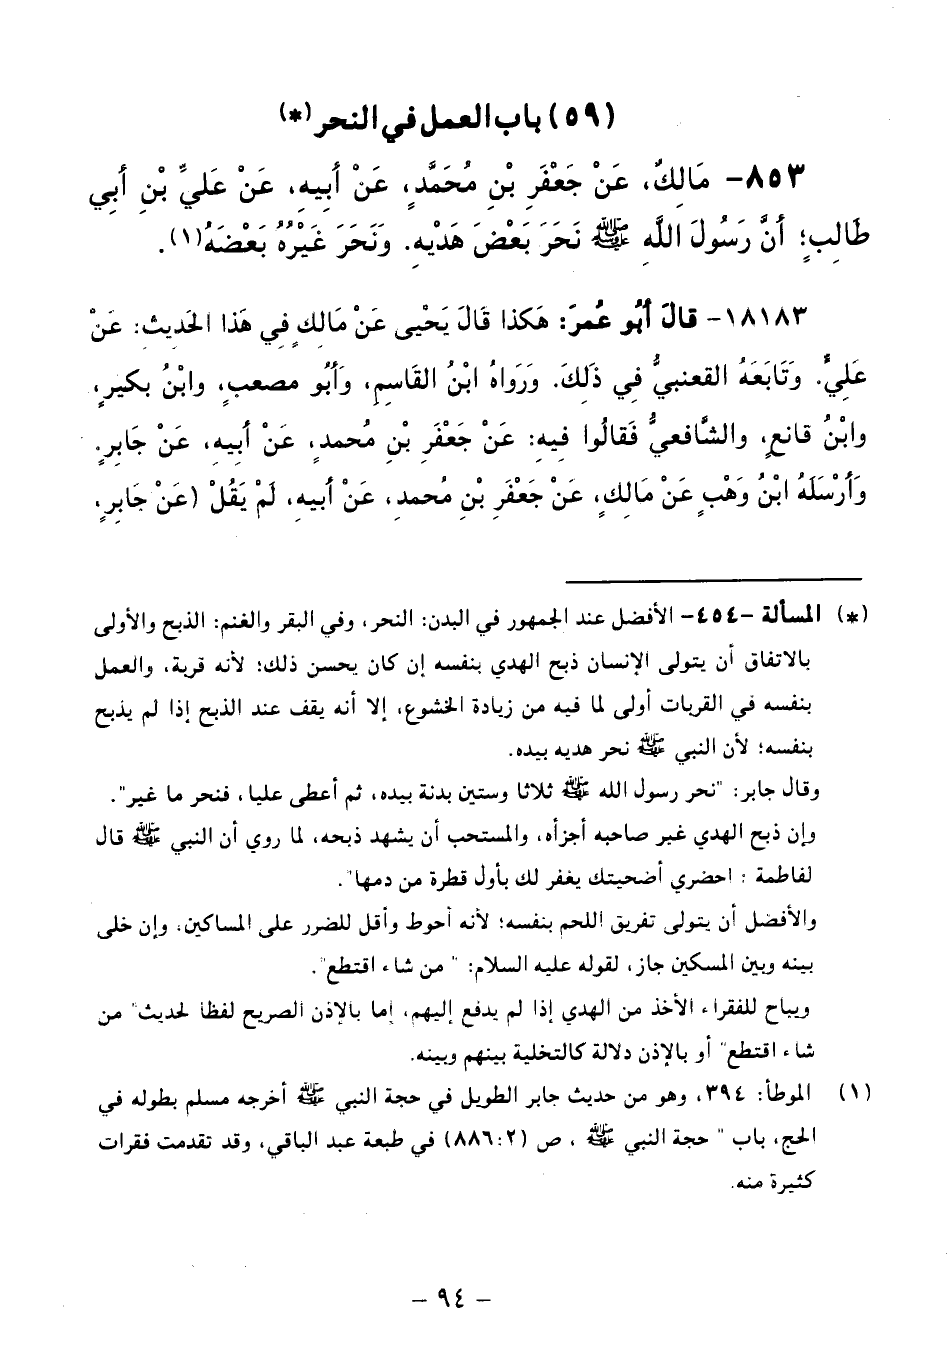 (٥٩) باب العمل في النحر (*)
٨٥٣- مَالِكٌ، عَنْ جَعْفَرِ بْنِ مُحَمَّدٍ، عَنْ أَبِيهِ، عَنْ عَلِيِّ بْنِ أَبِي
طَالِبٍ؛ أَنَّ رَسُولَ اللَّهِ ﷺ نَحَرَ بَعْضَ هَدْيِهِ. وَنَحَرَ غَيْرُهُ بَعْضَهُ(١).
١٨١٨٣- قالَ أَبُو عُمرَ: هَكذا قَالَ يَحْيى عَنْ مَالِكٍ فِي هَذا الحَديث: عَنْ
عَلِيٍّ. وَتَابَعَهُ القعنبيُّ فِي ذلِكَ. وَرَوَاهُ ابْنُ القَاسِمِ، وَأَبُو مصعبٍ، وابْنُ بكيرٍ،
وابْنُ قانعٍ، والشَّافعيُّ فَقالُوا فيهِ: عَنْ جَعْفَرِ بْنِ مُحمدٍ، عَنْ أَبيهِ، عَنْ جَابرٍ.
وَأَرْسَلَهُ ابْنُ وَهْبٍ عَنْ مَالكٍ، عَنْ جَعْفَرِ بْنِ مُحمدٍ، عَنْ أَبيهِ، لَمْ يَقُلْ (عَنْ جَابرٍ،
(*) المسألة -٤٥٤- الأفضل عند الجمهور في البدن: النحر، وفي البقر والغنم: الذبح والأولى
بالاتفاق أن يتولى الإنسان ذبح الهدي بنفسه إن كان يحسن ذلك؛ لأنه قربة، والعمل
بنفسه في القربات أولى لما فيه من زيادة الخشوع، إلا أنه يقف عند الذبح إذا لم يذبح
بنفسه؛ لأن النبي ﷺ نحر هديه بيده.
وقال جابر: "نحر رسول الله ﷺ ثلاثا وستين بدنة بيده، ثم أعطى عليا، فنحر ما غبر".
وإن ذبح الهدي غير صاحبه أجزأه، والمستحب أن يشهد ذبحه، لما روي أن النبي ﷺ قال
لفاطمة : احضري أضحيتك يغفر لك بأول قطرة من دمها".
والأفضل أن يتولى تفريق اللحم بنفسه؛ لأنه أحوط وأقل للضرر على المساكين، وإن خلى
بينه وبين المسكين جاز، لقوله عليه السلام: " من شاء اقتطع".
ويباح للفقراء الأخذ من الهدي إذا لم يدفع إليهم، إما بالإذن الصريح لفظا لحديث" من
شاء اقتطع" أو بالإذن دلالة كالتخلية بينهم وبينه.
(١) الموطأ: ٣٩٤، وهو من حديث جابر الطويل في حجة النبي ﷺ أخرجه مسلم بطوله في
الحج، باب " حجة النبي ﷺ ، ص (٨٨٦:٢) في طبعة عبد الباقي، وقد تقدمت فقرات
كثيرة منه.
– ٩٤ –